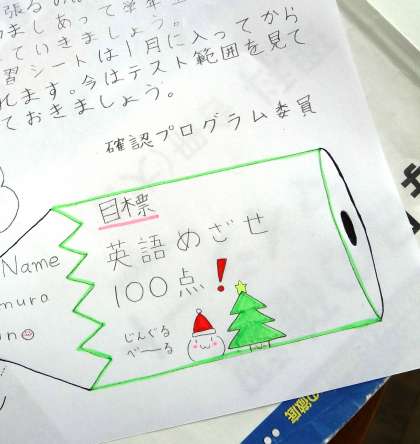 張る
あって学年
ていきましょう。
習シートは1月に入ってから
れます。今はテスト範囲を見て
ておきましょう。
確認プログラム委員
目標
英語めざせ
100点!
じんぐる
べーる
Name
mura
の徹底